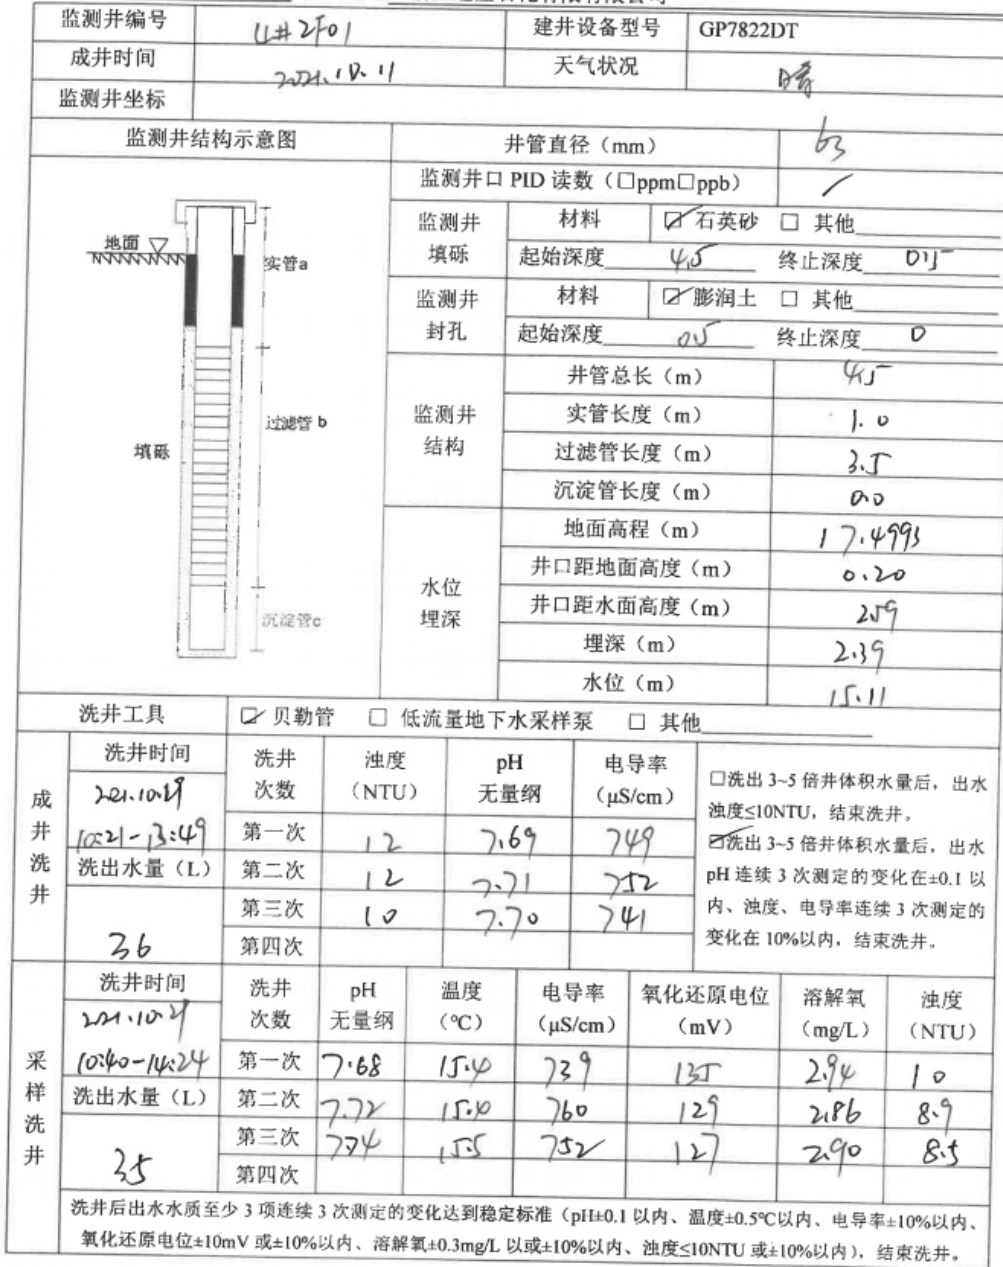 监测井编号 建井设备型号 GP7822DT
成井时间 2021.10.11 天气状况 晴
监测井坐标
监测井结构示意图 井管直径（mm） 63
监测井口 PID 读数（□ppm□ppb） /
监测井填砾 材料 ☑石英砂 □ 其他
起始深度 4.5 终止深度 0.5
监测井封孔 材料 ☑膨润土 □ 其他
起始深度 0.5 终止深度 0
地面
实管a
过滤管 b
填砾
沉淀管c
监测井结构 井管总长（m） 4.5
实管长度（m） 1.0
过滤管长度（m） 3.5
沉淀管长度（m） 0.0
水位埋深 地面高程（m） 17.4993
井口距地面高度（m） 0.20
井口距水面高度（m） 2.59
埋深（m） 2.39
水位（m） 15.11
洗井工具 ☑贝勒管 □ 低流量地下水采样泵 □ 其他
成井洗井
洗井时间 洗井次数 浊度（NTU） pH 无量纲 电导率（μS/cm）
10:21-13:49
第一次 12 7.69 749
洗出水量（L） 第二次 12 7.71 752
第三次 10 7.70 741
36 第四次
□洗出 3~5 倍井体积水量后，出水
浊度≤10NTU，结束洗井。
☑洗出 3~5 倍井体积水量后，出水
pH 连续 3 次测定的变化在±0.1 以
内、浊度、电导率连续 3 次测定的
变化在 10%以内，结束洗井。
采样洗井
洗井时间 洗井次数 pH 无量纲 温度（℃） 电导率（μS/cm） 氧化还原电位（mV） 溶解氧（mg/L） 浊度（NTU）
10:40-14:24 第一次 7.68 15.4 739 135 2.94 10
洗出水量（L） 第二次 7.72 15.4 760 129 2.86 8.9
第三次 7.74 15.5 752 127 2.90 8.5
35 第四次
洗井后出水水质至少 3 项连续 3 次测定的变化达到稳定标准（pH±0.1 以内、温度±0.5℃以内、电导率±10%以内、
氧化还原电位±10mV 或±10%以内、溶解氧±0.3mg/L 以或±10%以内、浊度≤10NTU 或±10%以内），结束洗井。